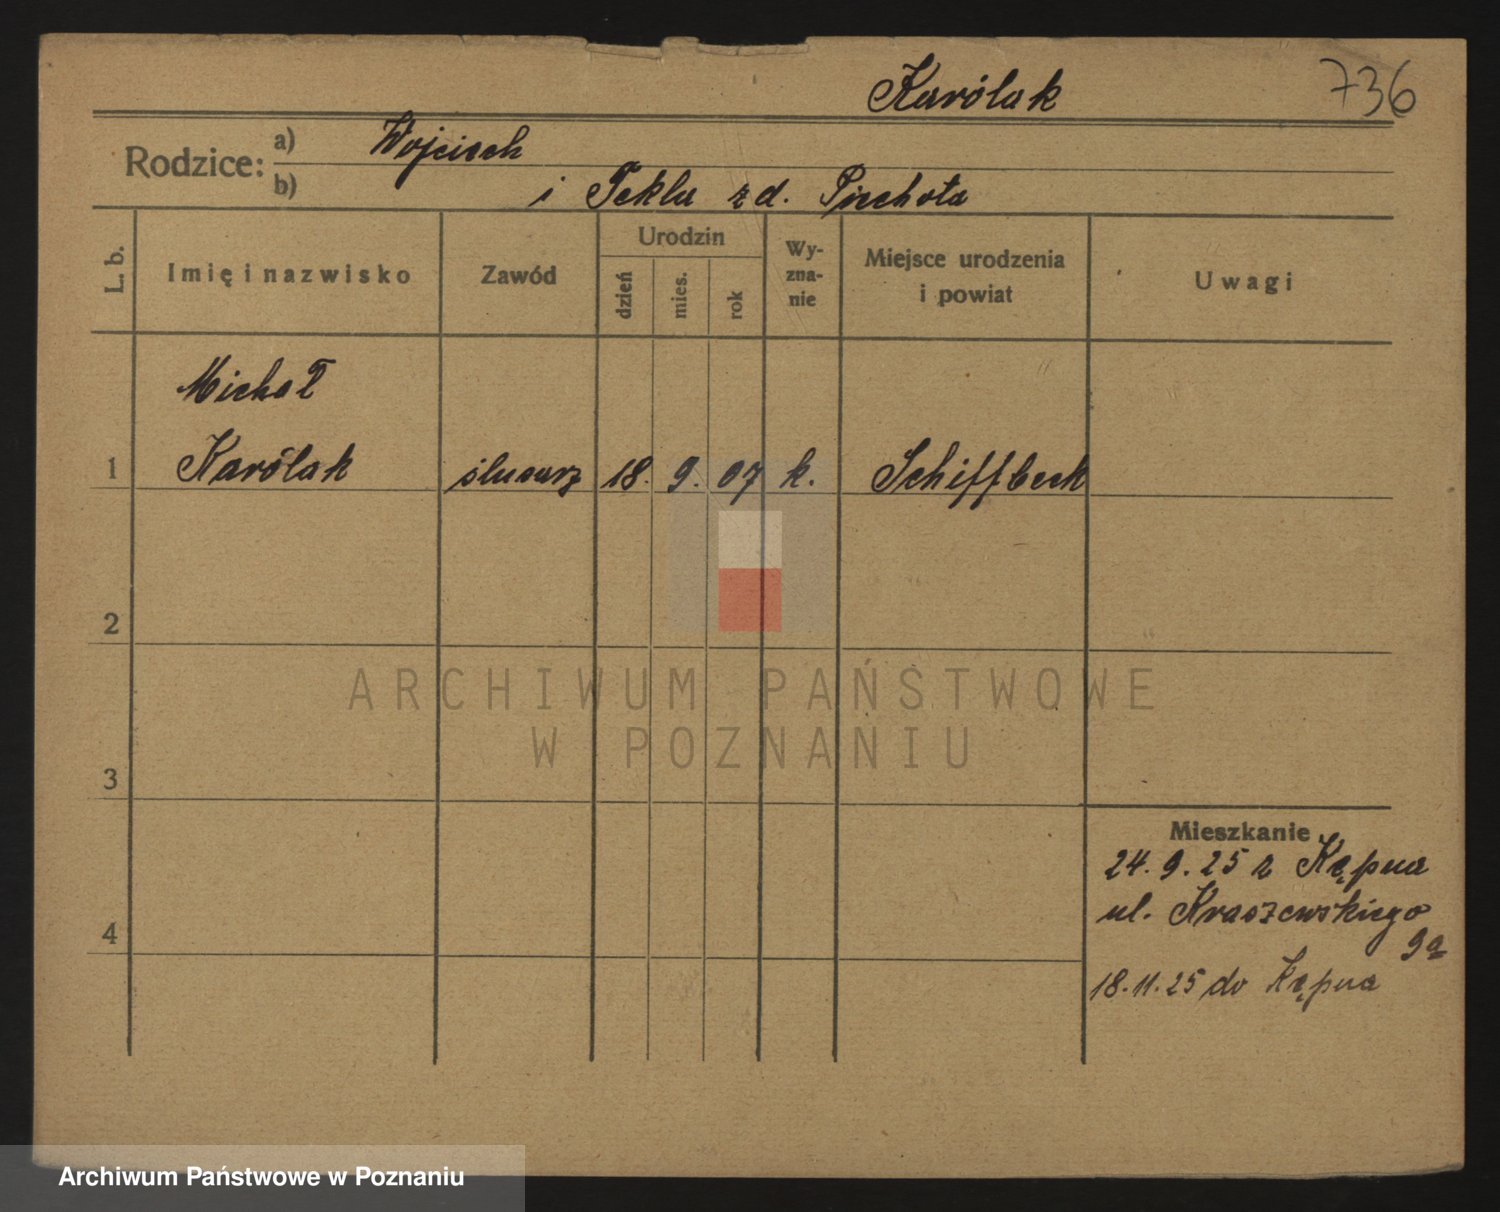 Karólak 736
Rodzice: a) Wojciech
b) i Tekla z d. Piechota
L. b. Imię i nazwisko Zawód Urodzin dzień mies. rok Wy-zna-nie Miejsce urodzenia i powiat Uwagi
Michał
1 Karólak ślusarz 18. 9. 07 k. Schiffbeck
2
ARCHIWUM PAŃSTWOWE
W POZNANIU
3
Mieszkanie
24. 9. 25 z Kępna
ul. Kraszewskiego
4 9a
18. 11. 25 do Kępna
Archiwum Państwowe w Poznaniu